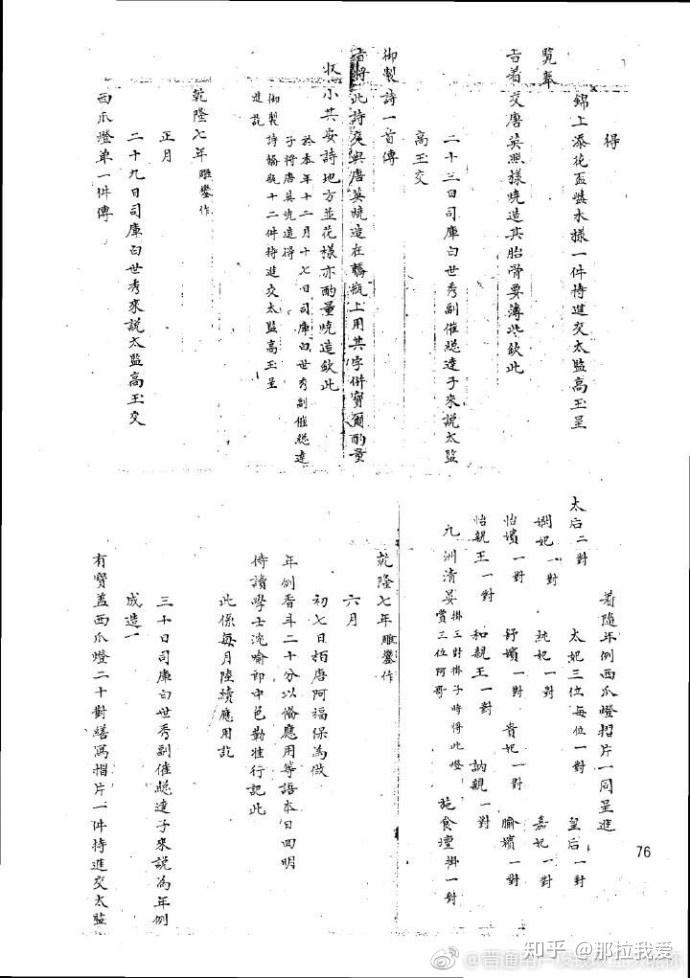 得
錦上添花盃嬎水樣一件持進交太監高玉呈
覽奉
旨着交唐英照樣燒造其胎骨要薄些欽此
二十三日司庫白世秀副催總達子來說太監
高玉交
御製詩一首傳
旨將此詩交與唐英燒造在轎瓶上用其字併寶爾酌量
收小其安詩地方並花樣亦酌量燒造欽此
於本年十二月十七日司庫白世秀副催總達
子將唐英燒造得
御製詩轎瓶十二件持進交太監高玉呈
進訖
乾隆七年 雕鑾作
正月
二十九日司庫白世秀來說太監高玉交
西瓜燈第一件傳
着隨年例西瓜燈摺片一同呈進
太后二對 太妃三位每位一對 皇后一對
嫻妃一對 純妃一對 嘉妃一對
怡嬪一對 舒嬪一對 貴妃一對 愉嬪一對
怡親王一對 和親王一對 訥親一對
九洲清晏掛三對掛子時得此燈賞三位阿哥 施食壇掛一對
乾隆七年 雕鑾作
六月
初七日栢唐阿福保為做
年例香斗二十分以備應用等語本日回明
侍讀學士沈喻郎中色勒准行記此
此係每月陸續應用訖
三十日司庫白世秀副催總達子來說為年例
成造一
有寶蓋西瓜燈二十對繕寫摺片一件持進交太監
76
知乎 @那拉我爱